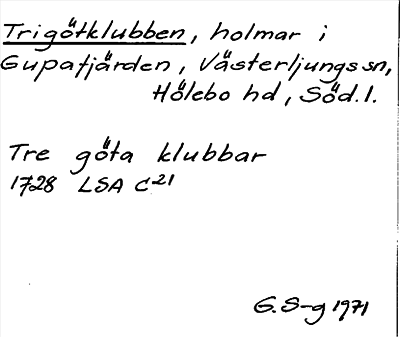 Trigötklubben, holmar i
Gupafjärden, Västerljungs sn,
Hölebo hd, Söd. l.
Tre göta klubbar
1728 LSA C21
G. S-g 1971